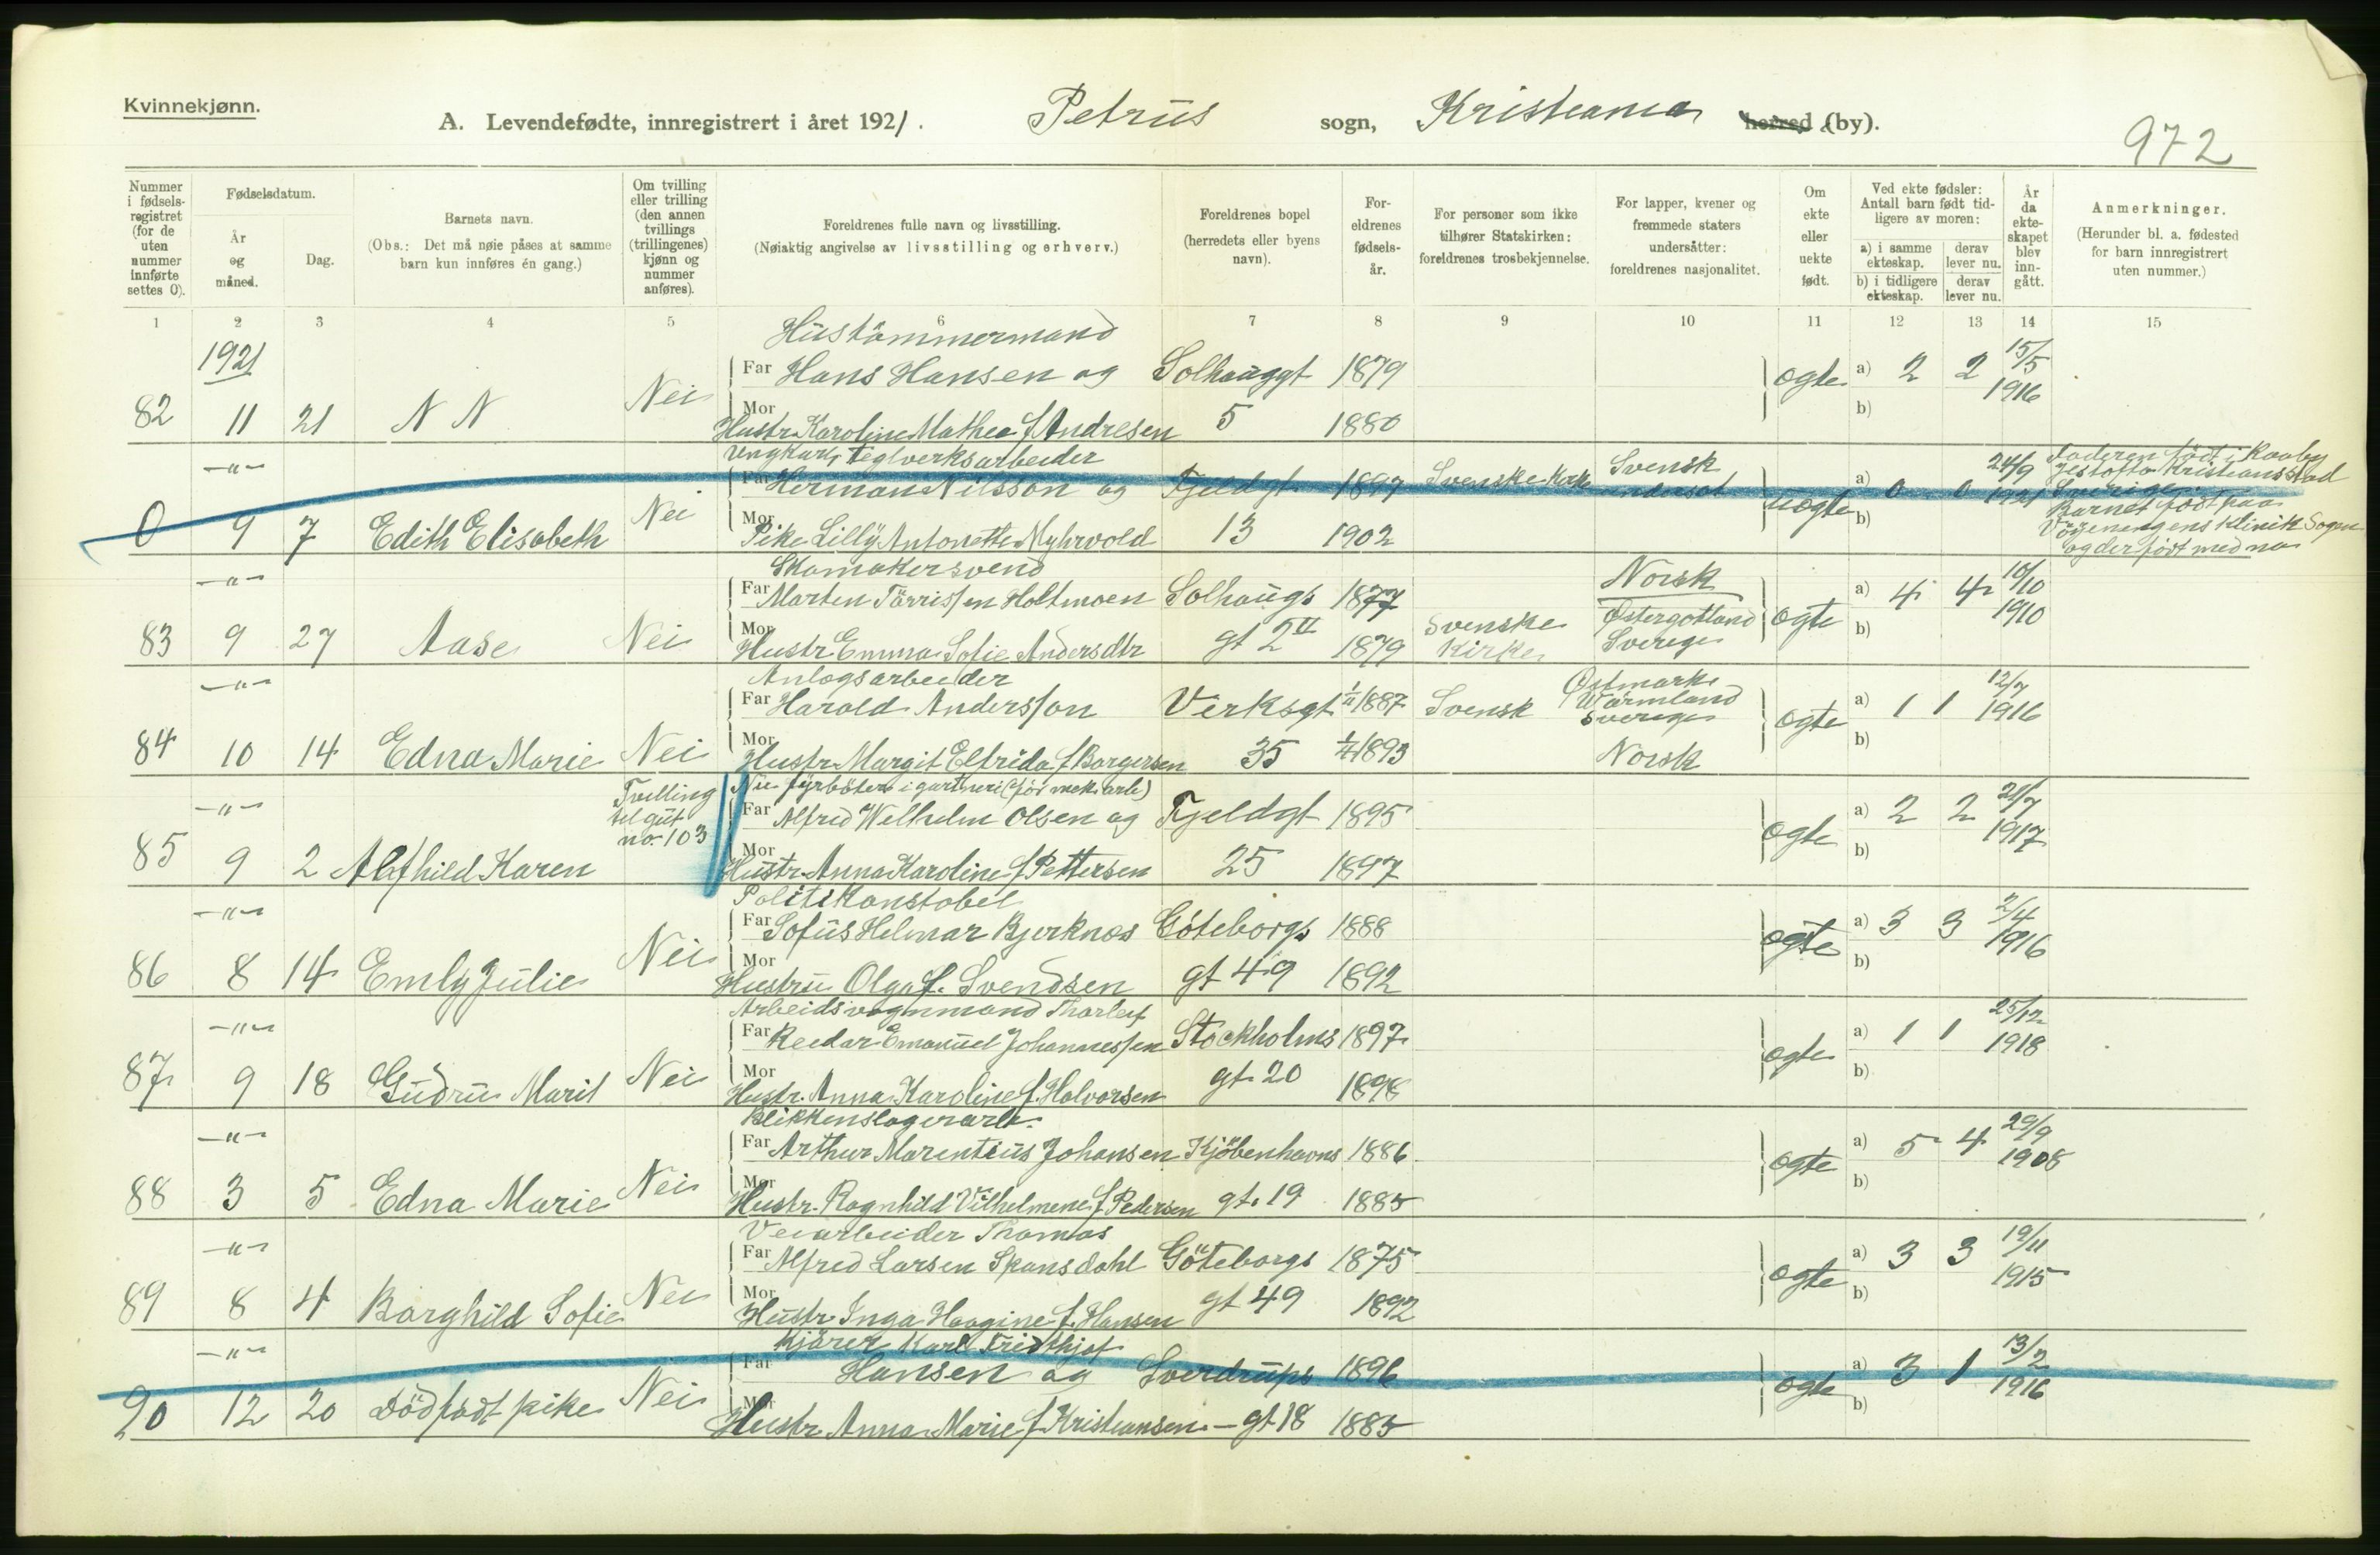 Kvinnekjønn.
A. Levendefødte, innregistrert i året 1921. Petrus sogn, Kristiania herred (by).
972
Nummer i fødsels-registret (for de uten nummer innførte settes 0).
Fødselsdatum.
År og måned.
Dag.
Barnets navn.
(Obs.: Det må nøie påses at samme barn kun innføres én gang.)
Om tvilling eller trilling (den annen tvillings (trillingenes) kjønn og nummer anføres).
Foreldrenes fulle navn og livsstilling.
(Nøiaktig angivelse av livsstilling og erhverv.)
Foreldrenes bopel (herredets eller byens navn).
For-eldrenes fødsels-år.
For personer som ikke tilhører Statskirken: foreldrenes trosbekjennelse.
For lapper, kvener og fremmede staters undersåtter: foreldrenes nasjonalitet.
Om ekte eller uekte født.
Ved ekte fødsler: Antall barn født tid-ligere av moren:
a) i samme ekteskap. derav lever nu.
b) i tidligere ekteskap. derav lever nu.
År da ekte-skapet blev inn-gått.
Anmerkninger.
(Herunder bl. a. fødested for barn innregistrert uten nummer.)
1 2 3 4 5 6 7 8 9 10 11 12 13 14 15
1921
Hustömmermand
Far Hans Hansen og Solhauggt 1879 ogte a) 2 2 15/5 1916
82 11 21 N N Nei
Mor Hustr Karoline Mathea f Andresen 5 1880 b)
-"- Ungkarl, teglverksarbeider
Far Herman Nilsson og Fjeldgt 1897 Svenske Kirke Svensk undersot uogte a) 0 0 24/9 1921
Faderen født i
Kristiansstad
Sverige
Barnet født paa
Klinik Sogn
og der ført med no
0 9 7 Edith Elisabeth Nei
Mor Pike Lilly Antonette Myhrvold 13 1902 b)
-"- Skomakersvend
Far Marten Törrissen Holtmoen Solhaugs 1877 Norsk ogte a) 4 4 10/10 1910
83 9 27 Aase Nei
Mor Hustr Emma Sofie Andersdtr gt 2 II 1879 Svenske Kirke Østergotland Sverige b)
-"- Anlogsarbeider
Far Harald Andersson Verksgt 1/11 1887 Svensk Østmark Wärmland Sverige ogte a) 1 1 12/7 1916
84 10 14 Edna Marie Nei
Mor Hustr Margit Elfrida f Borgersen 35 1893 Norsk b)
-"- Tvilling til gut no. 103
Nu fyrböter i gartneri (för mek arb)
Far Alfred Wilhelm Olsen og Fjeldgt 1895 ogte a) 2 2 21/7 1917
85 9 2 Alfhild Karen
Mor Hustr. Anna Karoline f Pettersen 25 1897 b)
-"- Politikonstabel
Far Sofus Helmar Bjerknes Göteborgs 1888 ogte a) 3 3 2/4 1916
86 8 14 Emly Julie Nei
Mor Hustru Olga f. Svendsen gt 49 1892 b)
-"- Arbeidsvognmand Thorleif
Far Reidar Emanuel Johannessen Stockholms 1897 ogte a) 1 1 25/12 1918
87 9 18 Gudrun Marit Nei
Mor Hustr. Anna Karoline f. Halvorsen gt. 20 1898 b)
-"- Blikkenslagerarb.
Far Arthur Marentius Johansen Kjöbenhavns 1886 ogte a) 5 4 29/9 1908
88 3 5 Edna Marie Nei
Mor Hustr. Ragnhild Vilhelmine f Pedersen gt. 19 1885 b)
-"- Veiarbeider Thomas
Far Alfred Larsen Skansdahl Göteborgs 1875 ogte a) 3 3 19/11 1915
89 8 4 Borghild Sofie Nei
Mor Hustr. Inga Haagine f. Hansen gt 49 1892 b)
-"- Kjörer Karl Fridthjof
Far Hansen og Sverdrups 1896 ogte a) 3 1 13/2 1916
90 12 20 Dödfödt pike Nei
Mor Hustr Anna Marie f Kristiansen - gt 18 1885 b)